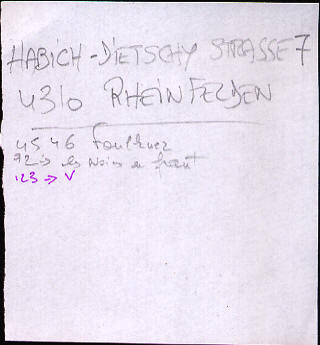 HABICH-DIETSCHY STRASSE 7
4310 RHEINFELDEN
45 46 Faulkner
92 → les noirs en front
123 → V